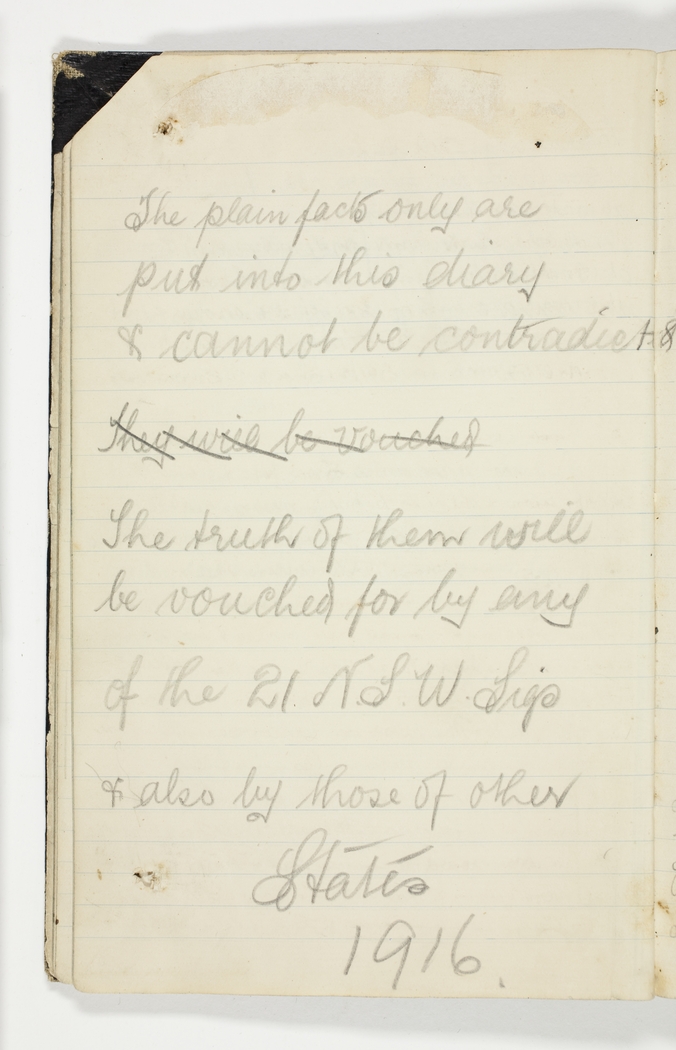 The plain facts only are
put into this diary
& cannot be contradict
They will be vouched
The truth of them will
be vouched for by any
of the 21 N.S.W. Sigs
& also by those of other
States
1916.